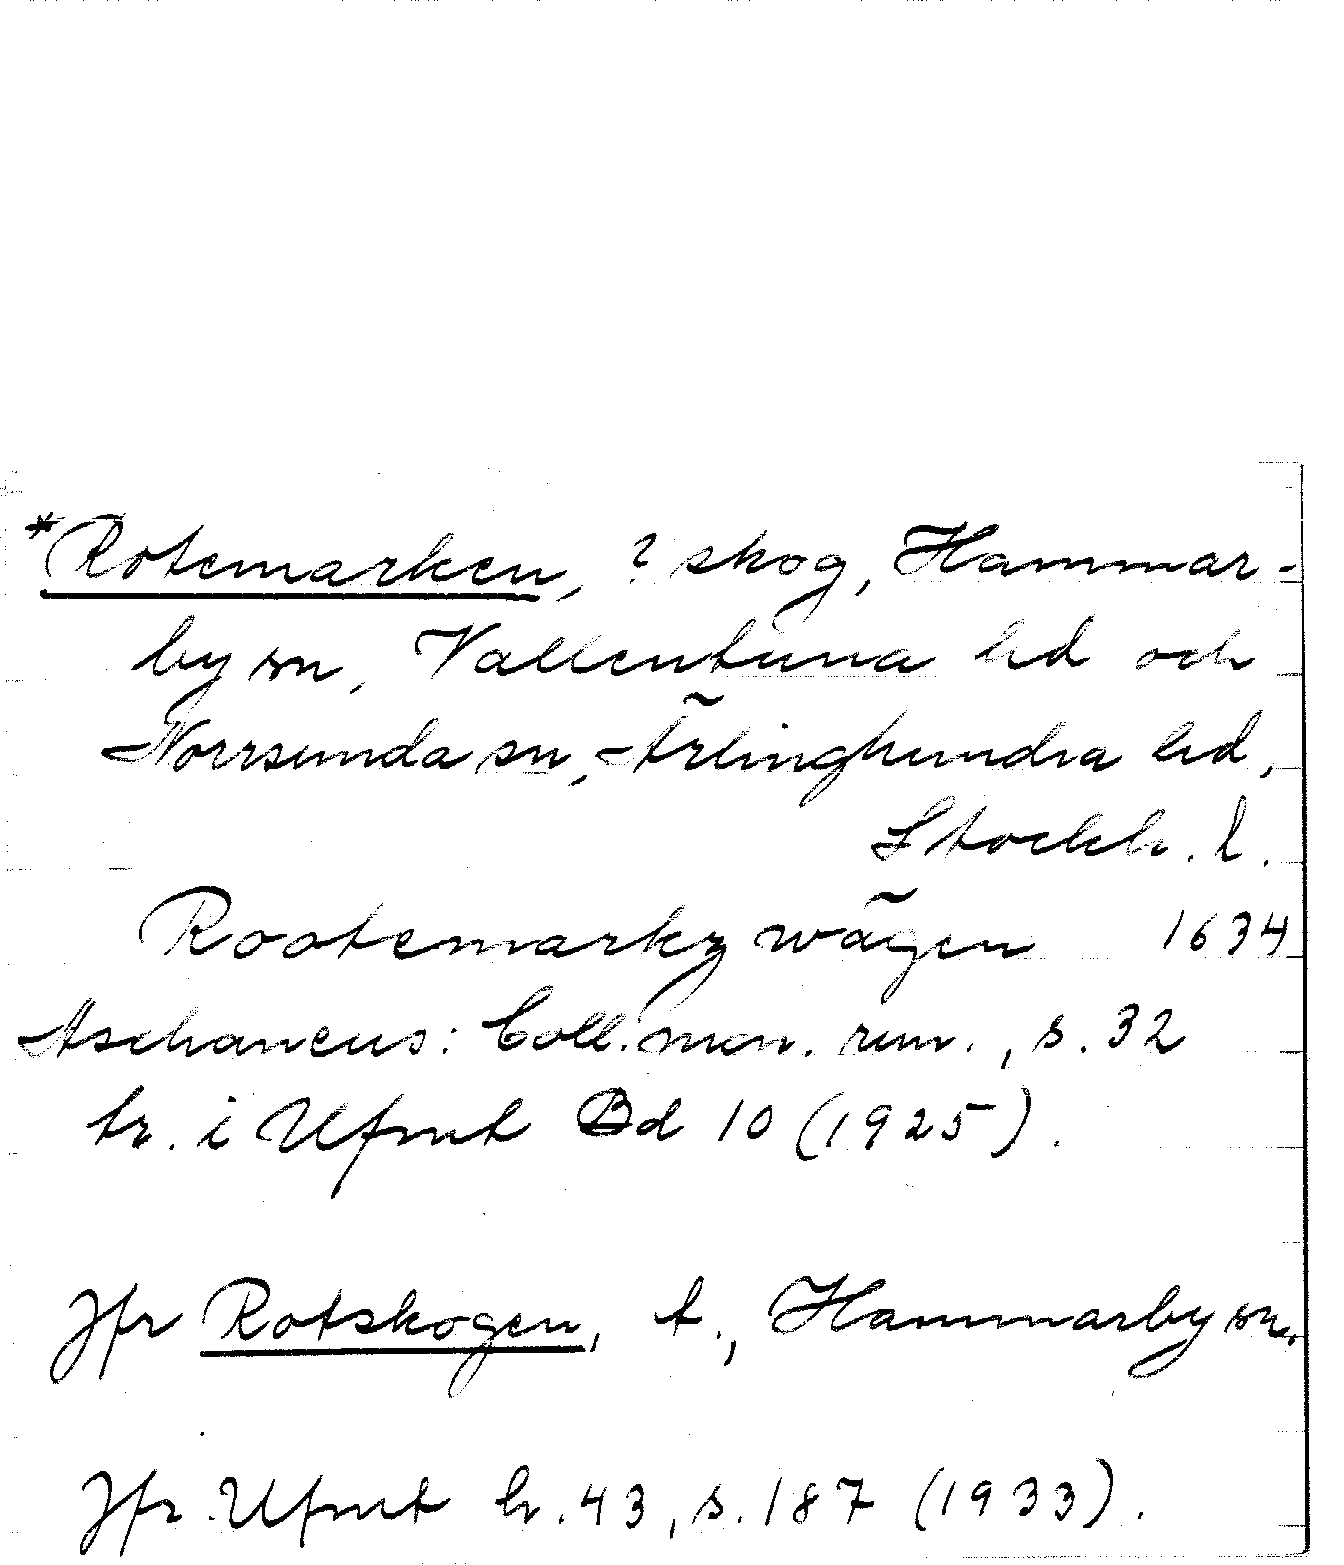 *Rotemarken, ? skog, Hammar-
by sn, Vallentuna hd och
Norrsunda sn, Ärlinghundra hd,
Stockh. l.
Rootemarkz wägen 1634
Aschaneus: Coll. mon. run., s. 32
tr. i Ufmt Bd 10 (1925).
Jfr Rotskogen, t., Hammarby sn.
Jfr Ufmt h. 43, s. 187 (1933).